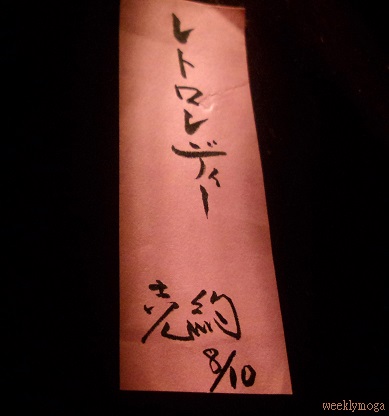 レトロレディー
売約
8/10
weeklymoga